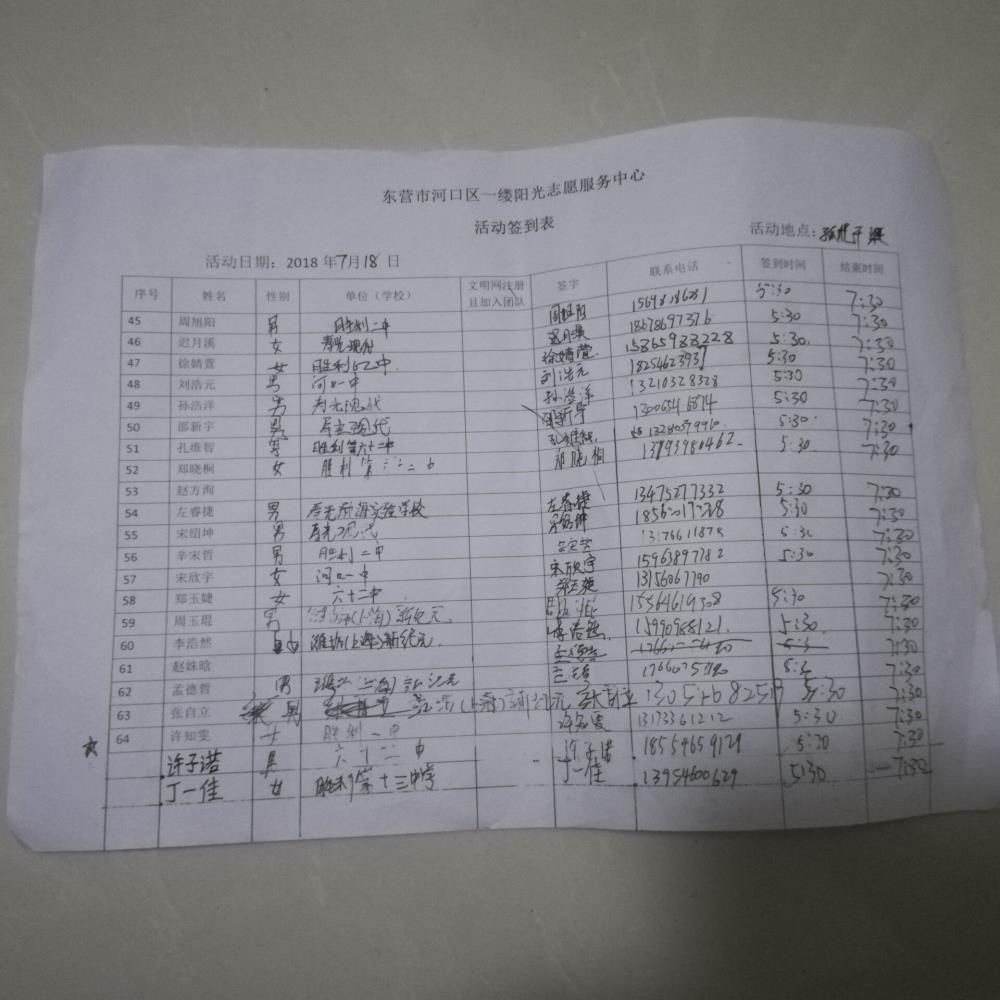 东营市河口区一缕阳光志愿服务中心
活动签到表
活动日期：2018 年7月18日 活动地点：
序号 姓名 性别 单位（学校） 文明网注册且加入团队 签字 联系电话 签到时间 结束时间
45 周旭阳 男 胜利二中 周旭阳 5:30 7:30
46 迟月溪 女 寿光现代 迟月溪 18678697376 5:30 7:30
47 徐婧萱 女 胜利62中 徐婧萱 15865988228 5:30 7:30
48 刘浩元 男 河口一中 刘浩元 18254623937 5:30 7:30
49 孙浩洋 男 寿光现代 孙浩洋 13210328328 5:30 7:30
50 邵新宇 男 寿光现代 邵新宇 5:30 7:30
51 孔维智 男 胜利第六十二中 5:30 7:30
52 郑晓桐 女 胜利第六十二中 郑晓桐 13793980462 5:30 7:30
53 赵方洵
54 左睿捷 男 左睿捷 13475277332 5:30 7:30
55 宋绍坤 男 寿光现代 宋绍坤 5:30 7:30
56 辛宋哲 男 胜利一中 辛宋哲 5:30 7:30
57 宋欣宇 女 河口一中 宋欣宇 15963897782 5:30 7:30
58 郑玉婕 女 六十二中 郑玉婕 13156067790 7:30
59 周玉琨 男 潍坊(上海)新纪元 15564619308 5:30 7:30
60 李浩然 男 潍坊(上海)新纪元 李浩然 15990988121 5:30 7:30
61 赵姝晗 7:30
62 孟德哲 男 潍坊(上海)新纪元 7:30
63 张自立 男 (上海)新纪元 张自立 5:30 7:30
64 许知雯 女 胜利一中 许知雯 13173361212 5:30 7:30
许子诺 男 六十二中 许子诺 18554659129 5:30 7:30
丁一佳 女 胜利第十三中学 丁一佳 13954600629 5:30 7:30